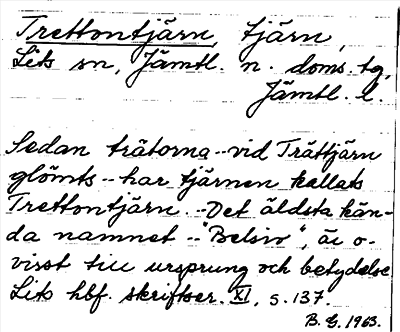 Trettontjärn, tjärn,
Lits sn, Jämtl. n. doms. tg,
Jämtl. l.
Sedan trätorna -- vid Trättjärn
glömts -- har tjärnen kallats
Trettontjärn. -- Det äldsta kän-
da namnet -- "Belsiv", är o-
visst till ursprung och betydelse
Lits hbf. skriftser. XI, s. 137.
B. G. 1963.